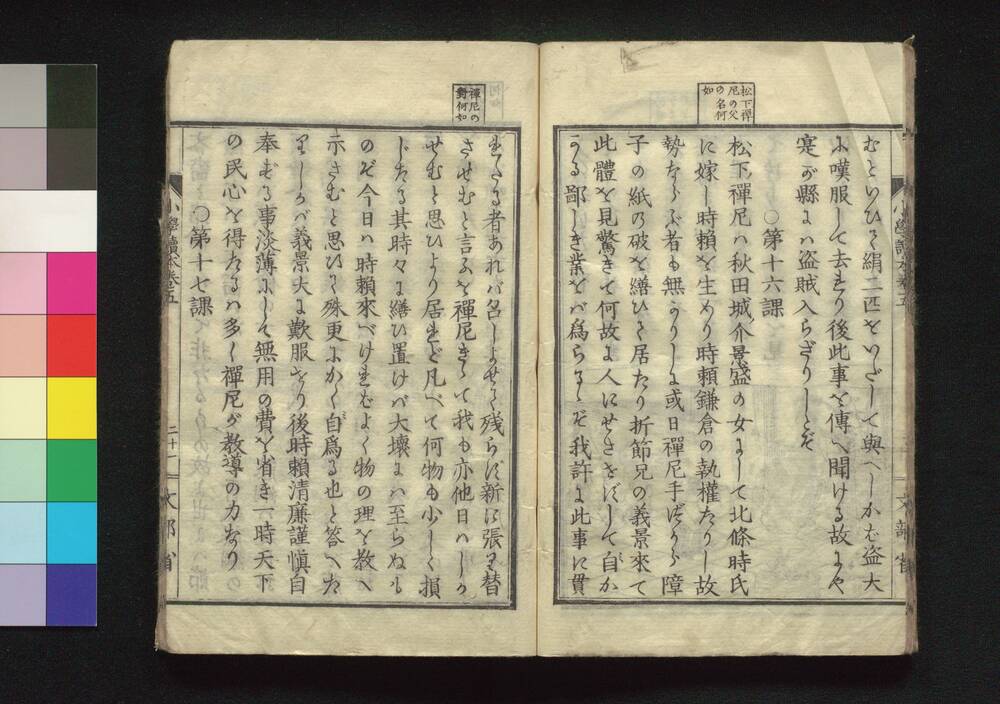 むといひて絹二匹をいだして與へしかむ盗大
に嘆服して去れり後此事を傳へ聞ける故にや
寔が縣には盗賊入らざりしとぞ
○第十六課
松下禪尼は秋田城介景盛の女にして北條時氏
に嫁し時賴を生めり時賴鎌倉の執權たりし故
勢ならぶ者も無かりしに或日禪尼手づから障
子の紙の破を繕ひて居たり折節兄の義景來て
此體を見驚きて何故に人にせさせずして自か
かる鄙しき業をば爲らるゝぞ我許に此事に貫
松下禪尼の父の名何如
れたる者あれば召しよせて殘らず新に張り替
させむと言ふを禪尼きゝて我も亦他日はしか
せむと思ひより居れど凡べて何物も少しく損
じたる其時々に繕ひ置けば大壞には至らぬも
のぞ今日は時賴來べければよく物の理を教へ
示さむと思ひて殊更にかく自爲る也と答へた
りしかば義景大に歎服せり後時賴淸廉謹愼自
奉ずる事淡薄にして無用の費を省き一時天下
の民心を得たるは多く禪尼が教導の力なり
○第十七課
禪尼の對何如
小學讀本卷五
二十一
文部省